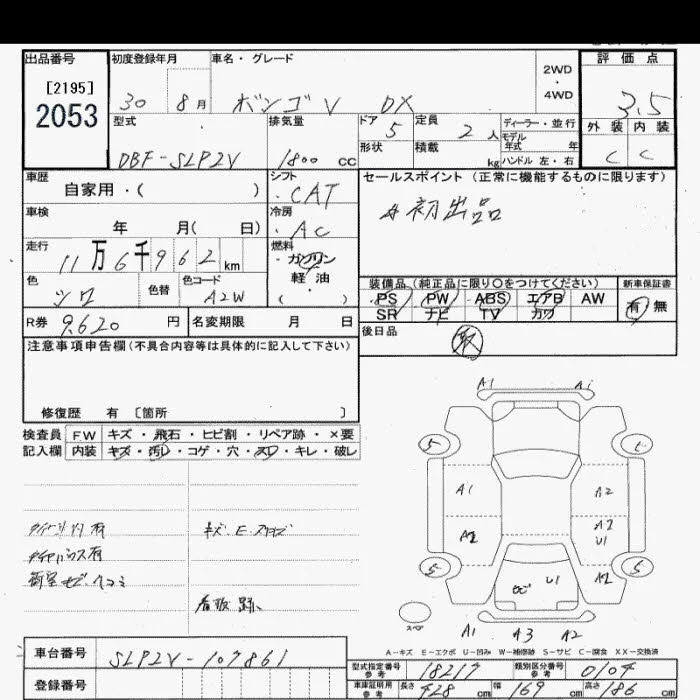 出品番号
[2195]
2053
初度登録年月
30 8月
車名・グレード
ボンゴV DX
2WD
・
4WD
評価点
3.5
外装 内装
C C
型式
DBF-SLP2V
排気量
1800 CC
ドア 5
形状
定員 2人
積載 kg
ディーラー・並行
モデル年式 年
ハンドル 左・右
車歴
自家用・( )
シフト
CAT
車検
年 月( 日)
冷房
AC
走行
11万6千962km
燃料
ガソリン
軽油
( )
色
シロ
色替
色コード
A2W
R券 9,620円
名変期限 月 日
セールスポイント(正常に機能するものに限ります)
#初出品
装備品(純正品に限り〇をつけてください)
PS PW ABS エアB AW
SR ナビ TV カワ
新車保証書
有 無
後日品
取
注意事項申告欄(不具合内容等は具体的に記入して下さい)
修復歴 有 [箇所 ]
検査員記入欄
FW キズ・飛石・ヒビ割・リペア跡・×要
内装 キズ・汚レ・コゲ・穴・スレ・キレ・破レ
キズ、E、スリキズ
看板跡
A1 A1
5 5
A1 A2
A2 A2
U1
5 5
U1 A2
スペア
A1 A3 A2
A-キズ E-エクボ U-凹み W-補修跡 S-サビ C-腐食 XX-交換済
車台番号 SLP2V-107861
登録番号
型式指定番号参考 18217
類別区分番号参考 0104
車庫証明用参考 長さ 428cm 幅 169cm 高さ 186cm